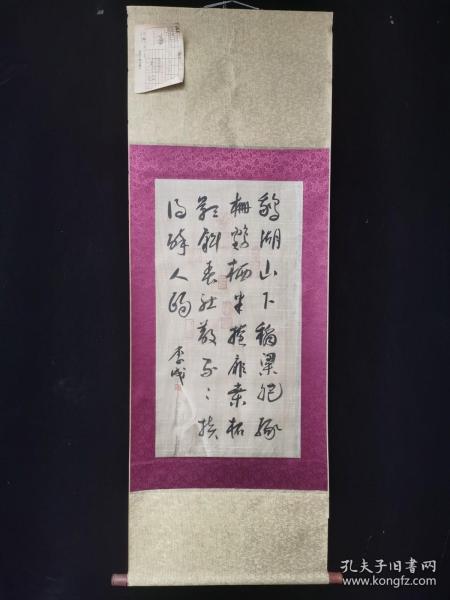 鵝湖山下稻梁肥豚
柵雞栖半掩扉桑柘
影斜春社散家々扶
得醉人歸
李成
孔夫子旧书网
www.kongfz.com